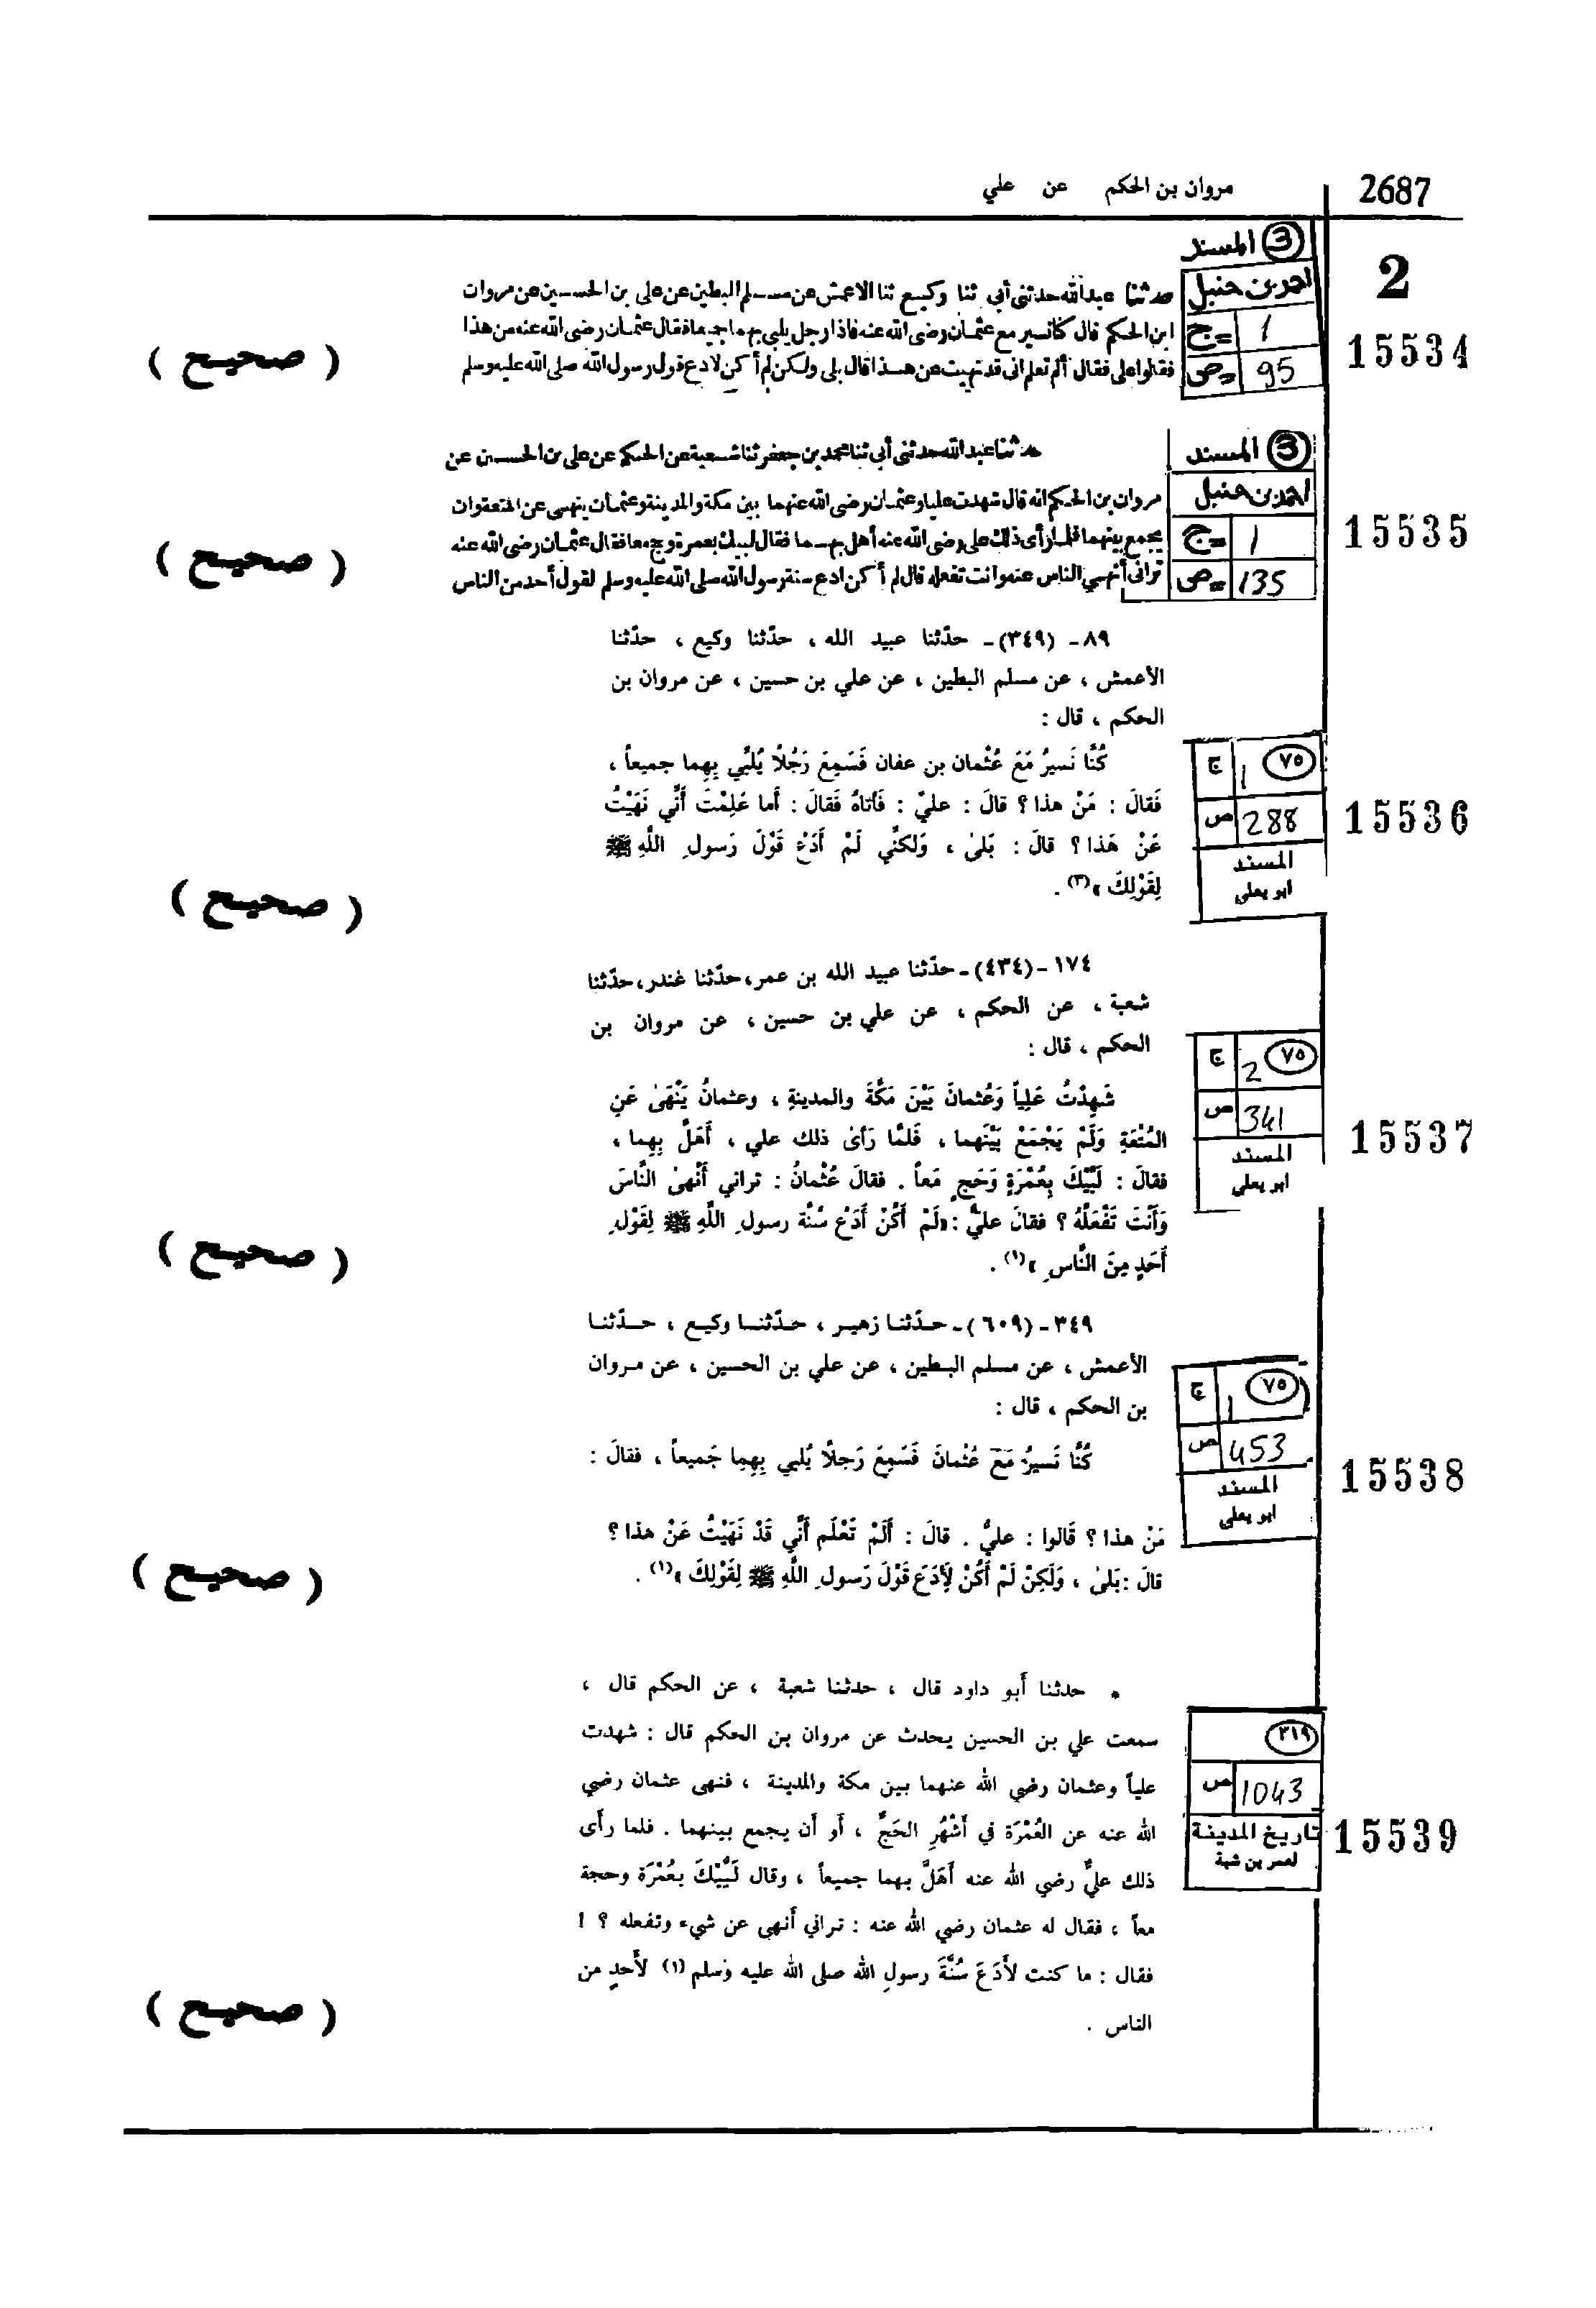 2687
مروان بن الحكم عن علي
2
15534
3 المسند
احمد بن حنبل
ج = 1
ص = 95
حدثنا عبدالله حدثنى أبي ثنا وكيع ثنا الاعمش عن مسلم البطين عن على بن الحسين عن مروان
ابن الحكم قال كنا نسير مع عثمان رضى الله عنه فاذا رجل يلبي بهما جميعا فقال عثمان رضى الله عنه من هذا
فقالوا على فقال ألم تعلم انى قد نهيت عن هذا قال بلى ولكن لم أكن لادع قول رسول الله صلى الله عليه وسلم
( صحيح )
15535
3 المسند
احمد بن حنبل
ج = 1
ص = 135
حدثنا عبد الله حدثنى أبي ثنا محمد بن جعفر ثنا شعبة عن الحكم عن على بن الحسين عن
مروان بن الحكم انه قال شهدت عليا وعثمان رضى الله عنهما بين مكة والمدينة وعثمان ينهى عن المتعة وان
يجمع بينهما فلما رأى ذلك على رضى الله عنه أهل بهما فقال لبيك بعمرة وحج معا فقال عثمان رضى الله عنه
ترانى أنهى الناس عنه وانت تفعله قال لم أكن ادع سنة رسول الله صلى الله عليه وسلم لقول أحد من الناس
( صحيح )
٨٩ - (٣٤٩) - حدّثنا عبيد الله ، حدّثنا وكيع ، حدّثنا
الأعمش ، عن مسلم البطين ، عن علي بن حسين ، عن مروان بن
الحكم ، قال :
15536
٧٥ ج 1
ص 288
المسند
ابو يعلى
كُنَّا نَسيرُ مَعَ عُثْمان بن عفان فَسَمِعَ رَجُلًا يُلَبِّي بِهِما جميعاً ،
فَقالَ : مَنْ هذا ؟ قالَ : عليّ : فَأتاهُ فَقالَ : أَما عَلِمْتَ أَنِّي نَهَيْتُ
عَنْ هَذا ؟ قالَ : بَلىٰ ، وَلكنِّي لَمْ أَدَعْ قَوْلَ رَسولِ اللَّهِ ﷺ
لِقَوْلِكَ »(٣) .
( صحيح )
١٧٤ - (٤٣٤) - حدّثنا عبيد الله بن عمر، حدّثنا غندر، حدّثنا
شعبة ، عن الحكم ، عن علي بن حسين ، عن مروان بن
الحكم ، قال :
15537
٧٥ ج 2
ص 341
المسند
ابو يعلى
شَهِدْتُ عَلِياً وَعُثمانَ بَيْنَ مَكَّةَ والمدينةِ ، وعثمانُ يَنْهَىٰ عَنِ
المُتْعَةِ وَلَمْ يَجْمَعْ بَيْنَهما ، فَلَمَّا رَأىٰ ذلك علي ، أَهَلَّ بِهما ،
فقالَ : لَبَّيْكَ بِعُمْرَةٍ وَحَجٍ مَعاً . فقالَ عُثْمانُ : تراني أَنْهىٰ النَّاسَ
وَأَنْتَ تَفْعَلُهُ ؟ فقالَ عليٌّ : «لَمْ أَكُنْ أَدَعُ سُنَّةَ رسولِ اللَّهِ ﷺ لِقَوْلِ
أَحَدٍ مِنَ النَّاسِ »(١) .
( صحيح )
٣٤٩ - (٦٠٩) - حدّثنا زهير ، حدّثنا وكيع ، حدّثنا
الأعمش ، عن مسلم البطين ، عن علي بن الحسين ، عن مروان
بن الحكم ، قال :
15538
٧٥ ج 1
ص 453
المسند
ابو يعلى
كُنَّا نَسيرُ مَعَ عُثْمانَ فَسَمِعَ رَجلًا يُلبي بِهِما جَميعاً ، فقالَ :
مَنْ هذا ؟ قَالوا : عليٌّ . قالَ : أَلَمْ تَعْلَم أَنِّي قَدْ نَهَيْتُ عَنْ هذا ؟
قالَ : بَلىٰ ، وَلَكِنْ لَمْ أَكُنْ لِأَدَعَ قَوْلَ رَسولِ اللَّهِ ﷺ لِقَوْلِكَ »(١) .
( صحيح )
15539
٢١٩
ص 1043
تاريخ المدينة
لعمر بن شبة
* حدثنا أبو داود قال ، حدثنا شعبة ، عن الحكم قال ،
سمعت علي بن الحسين يحدث عن مروان بن الحكم قال : شهدت
علياً وعثمان رضي الله عنهما بين مكة والمدينة ، فنهى عثمان رضي
الله عنه عن العُمْرَة في أَشْهُرِ الحَجِّ ، أو أن يجمع بينهما . فلما رأى
ذلك عليٌّ رضي الله عنه أَهَلَّ بهما جميعاً ، وقال لَبَّيْكَ بعُمْرَة وحجة
معاً ، فقال له عثمان رضي الله عنه : تراني أنهى عن شيء وتفعله ؟ !
فقال : ما كنت لأَدَعَ سُنَّةَ رسولِ الله صلى الله عليه وسلم (١) لأَحدٍ من
الناس .
( صحيح )